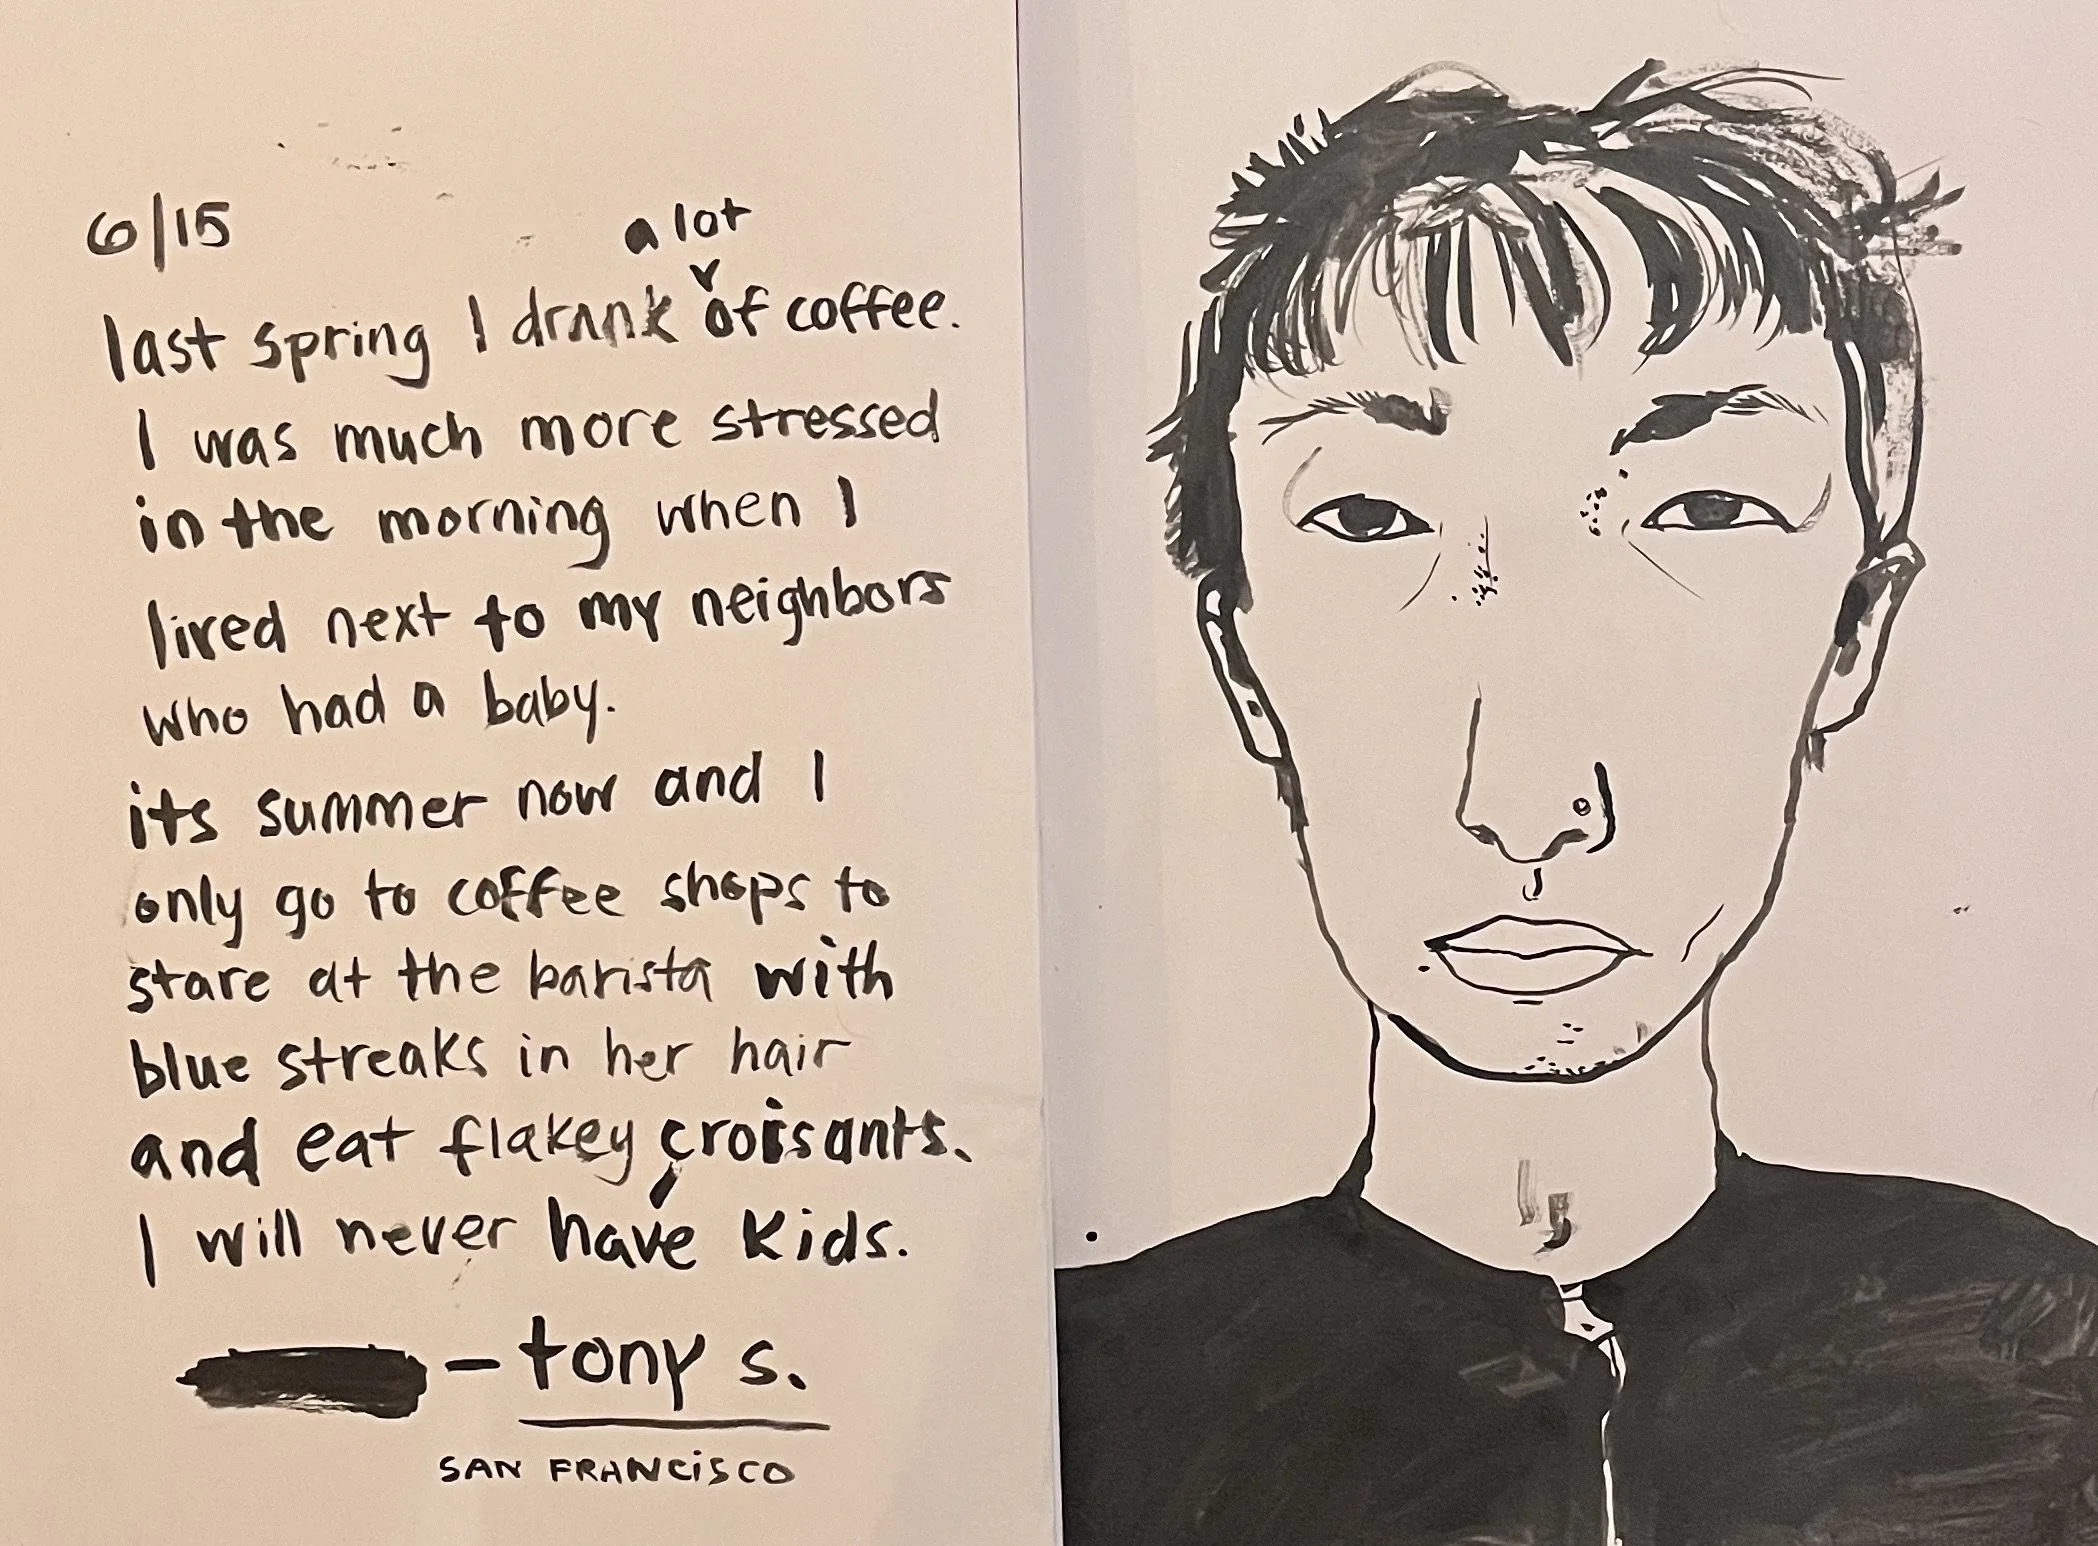 6/15
last spring I drank a lot of coffee.
I was much more stressed
in the morning when I
lived next to my neighbors
who had a baby.
its summer now and I
only go to coffee shops to
stare at the barista with
blue streaks in her hair
and eat flakey croisants.
I will never have kids.
- tony s.
SAN FRANCISCO